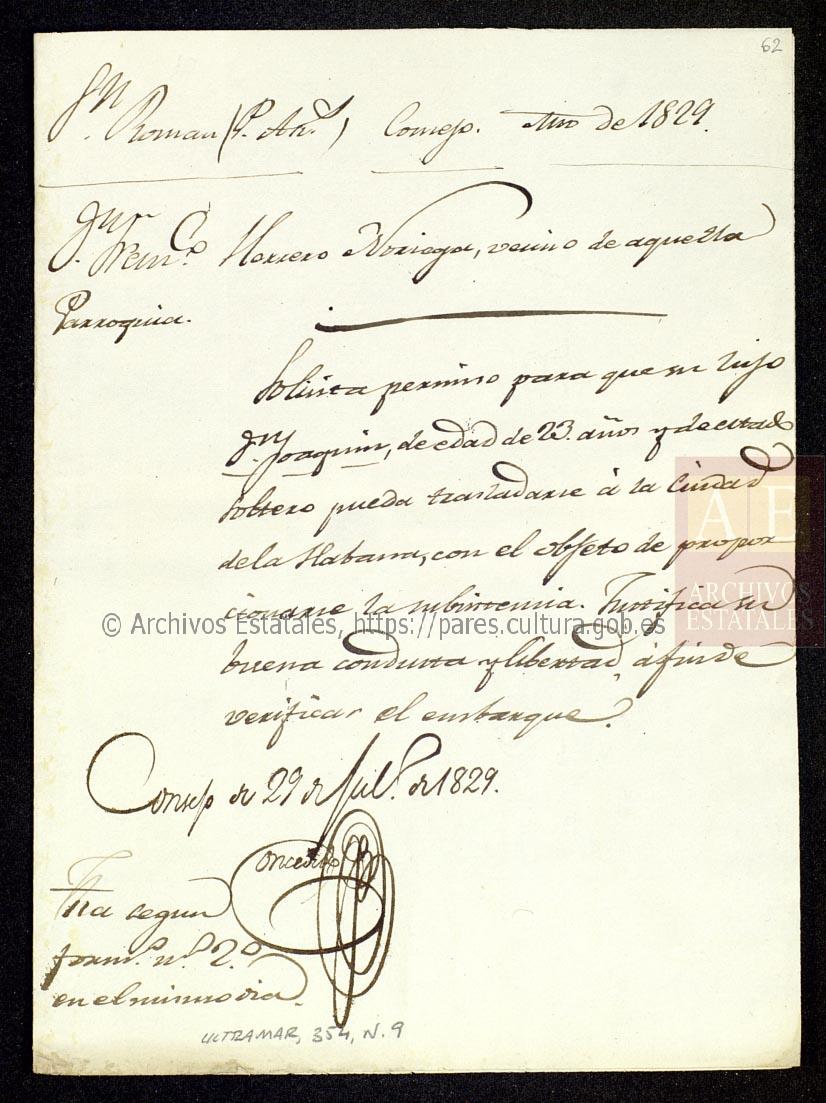 62
Sn. Roman (P. An.l) Consejo. Año de 1829.
Dn. Fran.co Herrero Noriega, vecino de aquella
Parroquia.
Solicita permiso para que su hijo
Dn. Joaquin, de edad de 23. años y de estado
soltero pueda trasladarse á la Ciudad
de la Habana, con el objeto de propor-
cionarse la subsistencia. Justifica su
buena conducta y libertad, á fin de
verificar el embarque.
Consejo de 29 de Jul.o de 1829.
Concedido
Fha segun
form.o n.o 2.o
en el mismo dia.
ULTRAMAR, 354, N. 9
© Archivos Estatales, https://pares.cultura.gob.es
AE
ARCHIVOS
ESTATALES